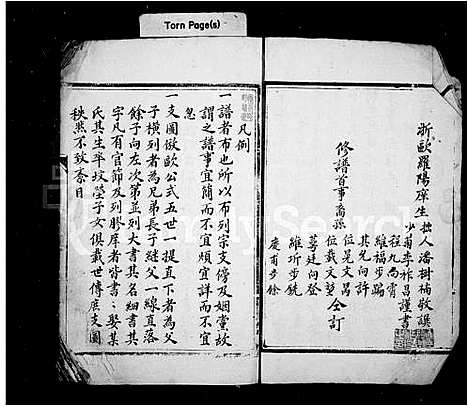 Torn Page(s)
浙歐羅陽庠生拙人潘樹楠敬譔
少蘭李祚昌謹書
修譜首事裔孫
程九 高霄
維福 步賜
其光 向許
位晃 文昌
位載 文堃
蓂廷 向登
維圻 步銑
慶甫 步錦
仝訂
凡例
一譜者布也所以布列宗支傍及姻黨故
謂之譜事宜簡而不宜煩宜詳而不宜
忽
一支圖倣歐公式五世一提直下者為父
子橫列者為兄弟長子緦父一線直落
餘子向左次第並列大書其名細書其
字凡有官節及列膠庠者皆書娶某
氏其生卒墳塋子女俱載世傳庶支圖
秩然不致紊目
FamilySearch